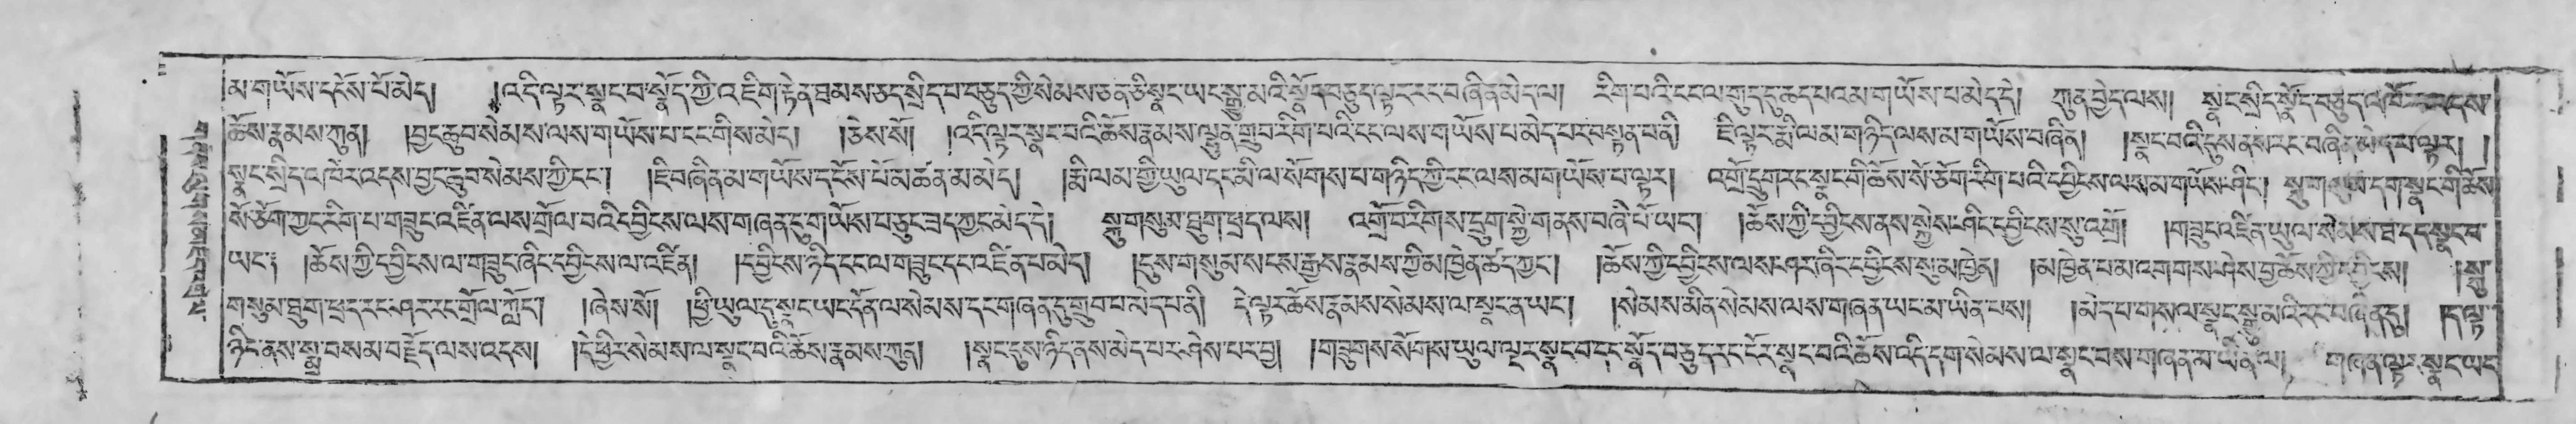 མ་གཡོས་དངོས་པོ་མེད། །འདི་ལྟར་སྣང་བ་སྣོད་ཀྱི་འཇིག་རྟེན་ཐམས་ཅད་སྲིད་པ་བཅུད་ཀྱི་སེམས་ཅན་ཅི་སྣང་ཡང་སྒྱུ་མའི་སྣོད་བཅུད་ལྟར་རང་བཞིན་མེད་ལ། རིག་པའི་ངང་ལ་གུད་དུ་ཆད་པའམ་གཡོས་པ་མེད་དེ། ཀུན་བྱེད་ལས། སྣང་སྲིད་སྣོད་བཅུད་འཁོར་འདས་
ཆོས་རྣམས་ཀུན། །བྱང་ཆུབ་སེམས་ལས་གཡོས་པ་ངང་གིས་མེད། །ཅེས་སོ། །འདི་ལྟར་སྣང་བའི་ཆོས་རྣམས་ལྷུན་གྲུབ་རིག་པའི་ངང་ལས་གཡོས་པ་མེད་པར་བསྟན་པ་ནི། ཇི་ལྟར་རྨི་ལམ་གཉིད་ལས་མ་གཡོས་བཞིན། །སྣང་བའི་དུས་ནས་རང་བཞིན་མེད་པ་ལྟར། །
སྣང་སྲིད་འཁོར་འདས་བྱང་ཆུབ་སེམས་ཀྱི་ངང་། །ཇི་བཞིན་མ་གཡོས་དངོས་པོ་མཚན་མ་མེད། །རྨི་ལམ་གྱི་ཡུལ་དང་མི་ལ་སོགས་པ་གཉིད་ཀྱི་ངང་ལས་མ་གཡོས་པ་ལྟར། འགྲོ་དྲུག་རང་སྣང་གི་ཆོས་སོ་ཅོག་རིག་པའི་དབྱིངས་ལས་མ་གཡོས་ཤིང་། སྐུ་གསུམ་དག་སྣང་གི་ཆོས་
སོ་ཅོག་ཀྱང་རིག་པ་གཟུང་འཛིན་ལས་གྲོལ་བའི་དབྱིངས་ལས་གཞན་དུ་གཡོས་པ་ཅུང་ཟད་ཀྱང་མེད་དེ། སྐུ་གསུམ་ཐུག་ཕྲད་ལས། འགྲོ་བ་རིགས་དྲུག་སྐྱེ་གནས་བཞི་པོ་ཡང་། །ཆོས་ཀྱི་དབྱིངས་ནས་སྐྱེས་ཤིང་དབྱིངས་སུ་འགྲོ། །གཟུང་འཛིན་ཡུལ་སེམས་ཐ་དད་སྣང་བ་
ཡང་། །ཆོས་ཀྱི་དབྱིངས་ལ་གཟུང་ཞིང་དབྱིངས་ལ་འཛིན། །དབྱིངས་ཉིད་ངང་ལ་གཟུང་དང་འཛིན་པ་མེད། །དུས་གསུམ་སངས་རྒྱས་རྣམས་ཀྱི་མཁྱེན་ཚད་ཀྱང་། །ཆོས་ཀྱི་དབྱིངས་ལས་ཤར་ཞིང་དབྱིངས་སུ་མཁྱེན། །མཁྱེན་པ་མ་འགགས་ཤེས་བྱ་ཆོས་ཀྱི་དབྱིངས། །སྐུ་
གསུམ་ཐུག་ཕྲད་རང་ཤར་རང་གྲོལ་ཀློང་། །ཞེས་སོ། །ཕྱི་ཡུལ་དུ་སྣང་ཡང་དོན་ལ་སེམས་དང་གཞན་དུ་གྲུབ་པ་མེད་པ་ནི། དེ་ལྟར་ཆོས་རྣམས་སེམས་ལ་སྣང་ན་ཡང་། །སེམས་མིན་སེམས་ལས་གཞན་ཡང་མ་ཡིན་པས། །མེད་པ་གསལ་སྣང་སྒྱུ་མའི་རང་བཞིན་དུ། །ད་ལྟ་
ཉིད་ནས་སྨྲ་བསམ་བརྗོད་ལས་འདས། །དེ་ཕྱིར་སེམས་ལ་སྣང་བའི་ཆོས་རྣམས་ཀུན། །སྣང་དུས་ཉིད་ནས་མེད་པར་ཤེས་པར་བྱ། །གཟུགས་སོགས་ཡུལ་ལྔར་སྣང་བ་དང་སྣོད་བཅུད་རང་ངོར་སྣང་བའི་ཆོས་འདི་དག་སེམས་ལ་སྣང་བས་གཞན་མ་ཡིན་ལ། གཞན་ལྟར་སྣང་ཡང་